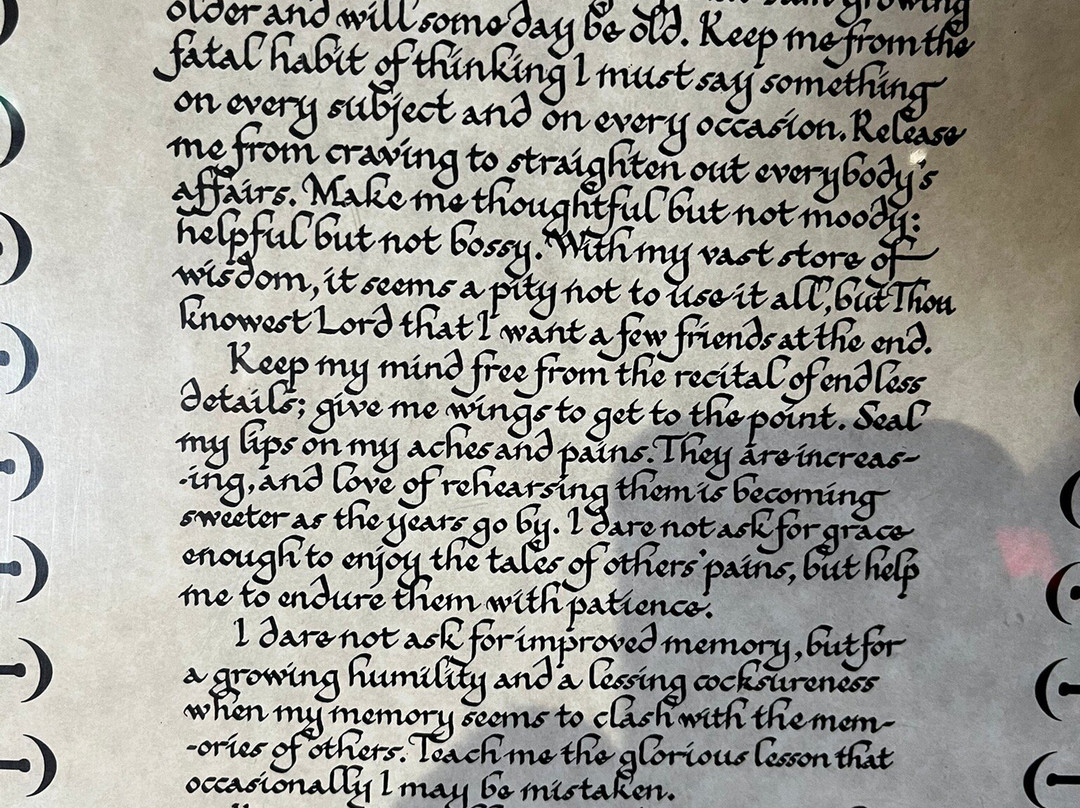 growing
older and will some day be old. Keep me from the
fatal habit of thinking I must say something
on every subject and on every occasion. Release
me from craving to straighten out everybody's
affairs. Make me thoughtful but not moody:
helpful but not bossy. With my vast store of
wisdom, it seems a pity not to use it all, but Thou
knowest Lord that I want a few friends at the end.
Keep my mind free from the recital of endless
details; give me wings to get to the point. Seal
my lips on my aches and pains. They are increas-
-ing, and love of rehearsing them is becoming
sweeter as the years go by. I dare not ask for grace
enough to enjoy the tales of others' pains, but help
me to endure them with patience.
I dare not ask for improved memory, but for
a growing humility and a lessing cocksureness
when my memory seems to clash with the mem-
-ories of others. Teach me the glorious lesson that
occasionally I may be mistaken.